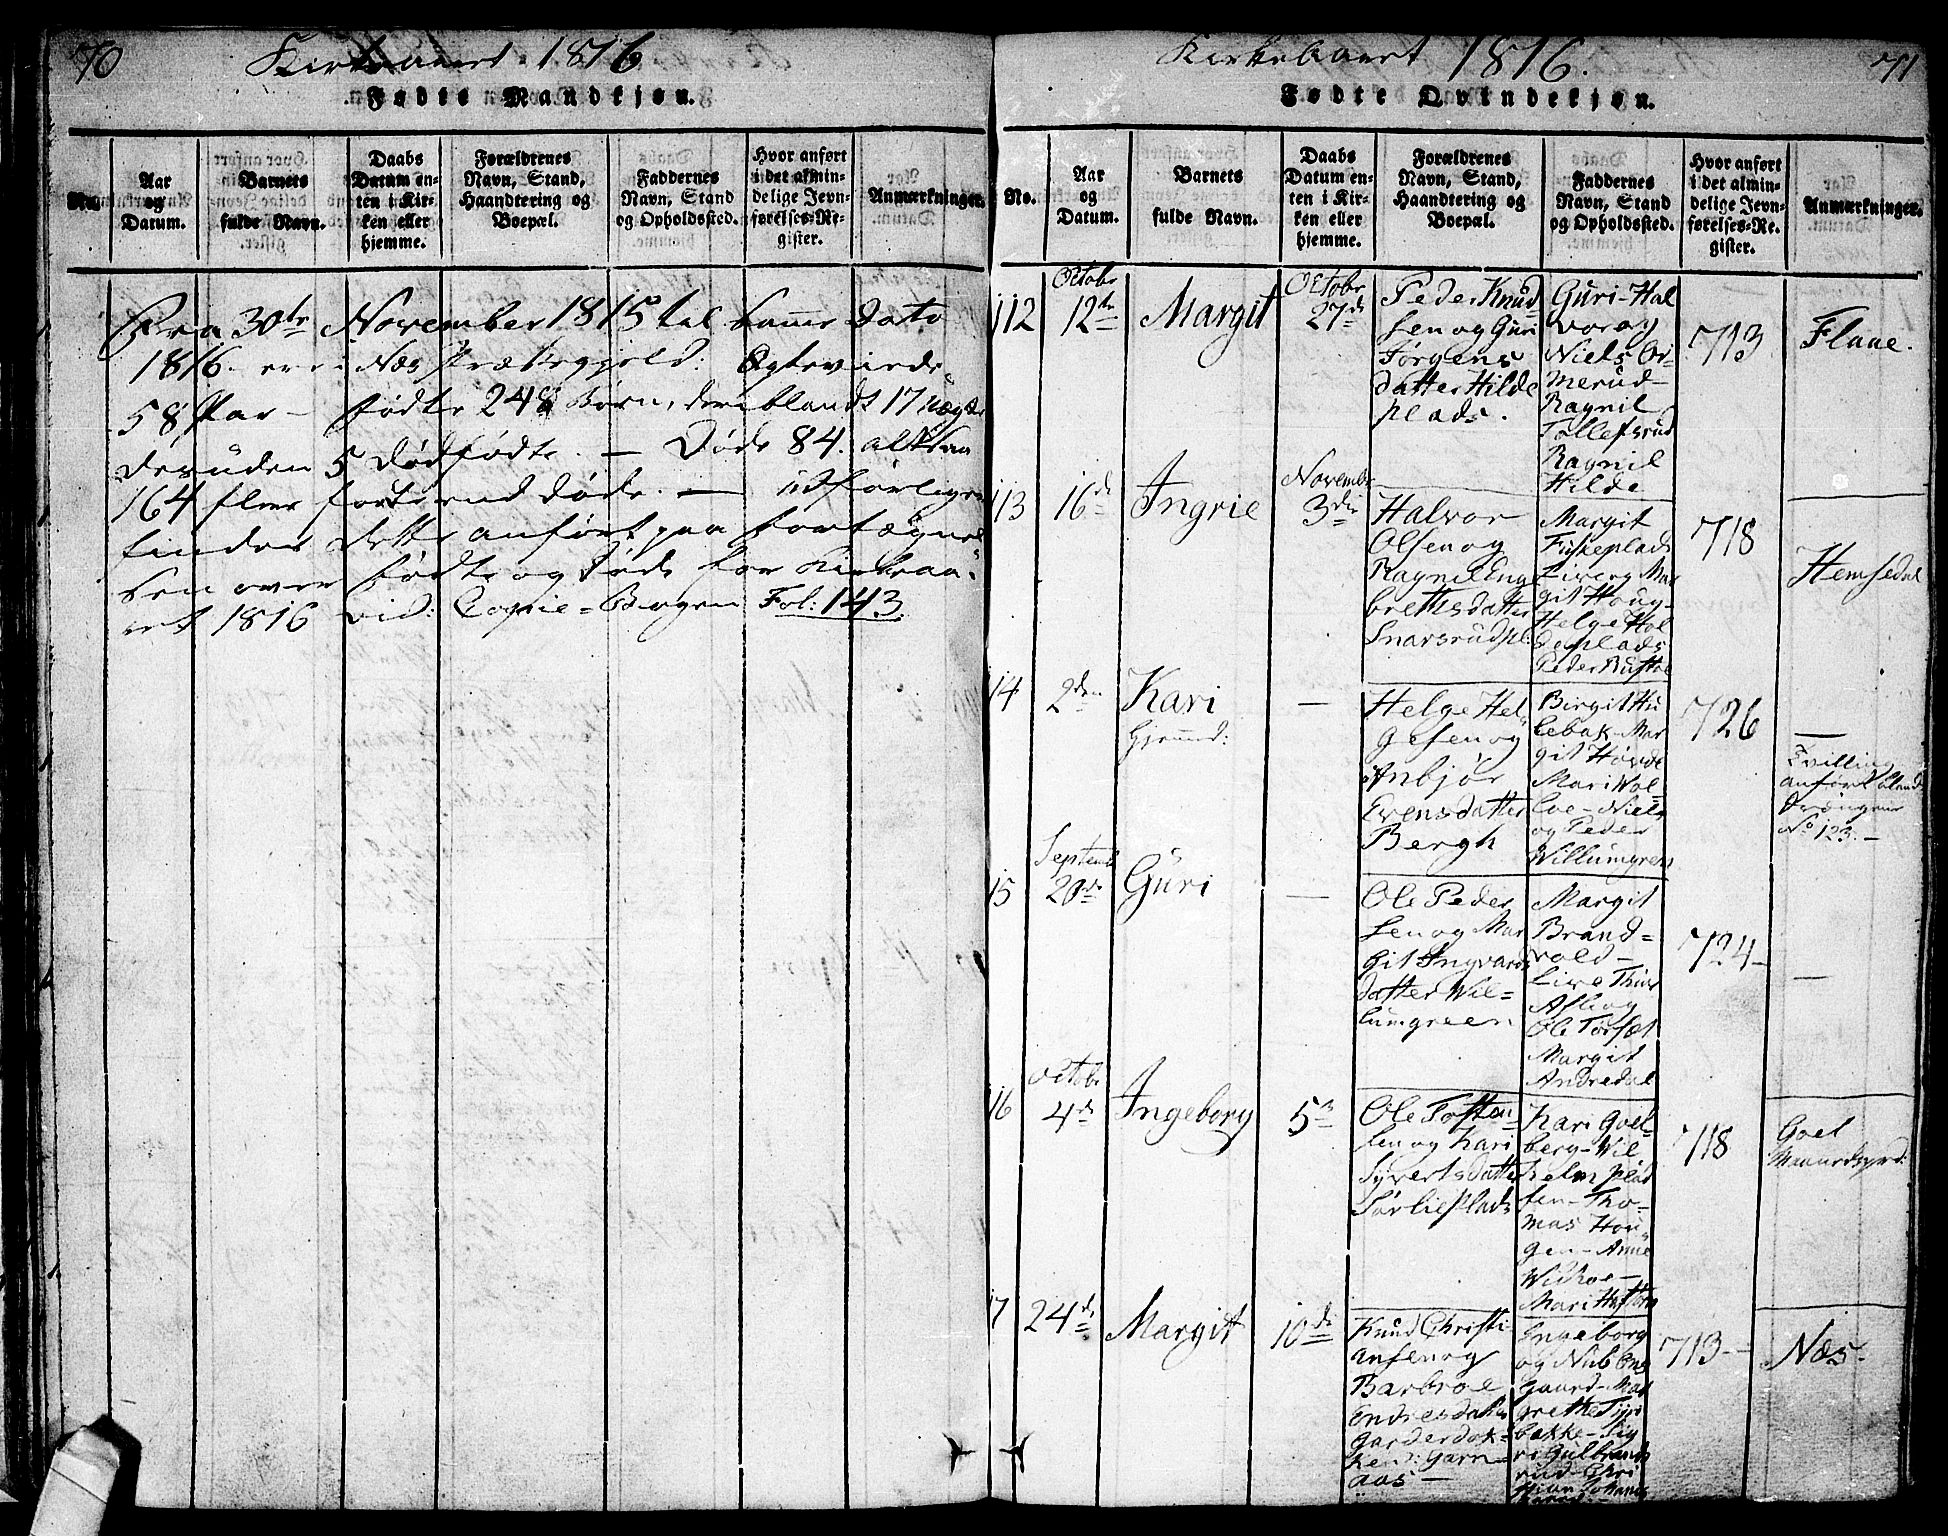 70 Kirkeaaret 1816
Fødte Mandkjøn.
No.
Aar og Datum.
Barnets fulde Navn.
Daabs Datum enten i Kirken eller hjemme.
Forældrenes Navn, Stand, Haandtering og Boepæl.
Faddernes Navn, Stand og Opholdssted.
Hvor anført i det almindelige Jevnførelses-Register.
Anmærkninger.
Fra 30te November 1815 til samme Dato
1816 ere i Næs Præstegjeld: Ægteviede
58 Par – fødte 248 Børn, deriblandt 17 uægte
desuden 5 dødfødte. – Døde 84. altsaa
164 flere fødte end døde. – udførligere
findes dette anført paa Fortegnel
sen over fødte og døde for Kirkeaa-
ret 1816 vid: Copie-Bogen Fol: 143
Kirkeaaret 1816. 71
Fødte Qvindekjøn.
No.
Aar og Datum.
Barnets fulde Navn.
Daabs Datum enten i Kirken eller hjemme.
Forældrenes Navn, Stand, Haandtering og Boepæl.
Faddernes Navn, Stand og Opholdssted.
Hvor anført i det almindelige Jevnførelses-Register.
Anmærkninger.
112
Octobr
12te
Margit
Octobr
27de
Peder Knud
sen og Guri
Jørgens
datter Hilde
plads.
Guri Hal
vora,
Niels Ør
merud –
Ragnil
Tollefsrud
Ragnil
Hilde
713
Flaae.
113
16de
Ingrie
Novembr
3die
Halvor
Olsen og
Ragnil Eng
brettisdatter
Snarsrudpl:
Margit
Fiskeplads
Liverg Mar
git Houg-
Helge Hol
deplads
Peder Rustbe
718
Hemsedal
114
2den
Kari
–
Helge Hel
gesen og
Anbjør
Evensdatter
Bergh
Birgit Hu
lebak-Mar
git Hovde
Mari Wol
loe – Niels
og Peder
Willumgreen
726
–
Tvilling
anført blandt
Drengene
No 123. –
115
Septemb
20de
Guri
–
Ole Peder
sen og Mar
git Ingvards
datter Wil=
lumgreen
Margit
Brand=
vold –
Live Thur
Asle og
Ole Torset
Margit
Andredal
724 –
–
116
Octobr
4de
Ingeborg
5te
Ole Tosten
sen og Kari
Syvertsdatter
Sørlie Plads
Kari Goel-
berg – Wil
helm plad
sen – Tho-
mas Hou
gen – Anne
Wiskoe –
Mari
718
Goel
117
24de
Margit
10de
Knud Christi
ansen og
Barbroe
Endresdatter
Garnaas –
Ingeborg
og Niels
gaard – Mar
grethe
bakke – Sig
ri Gulbrands
rud – Chri
stian Johannes
713 –
Næs.